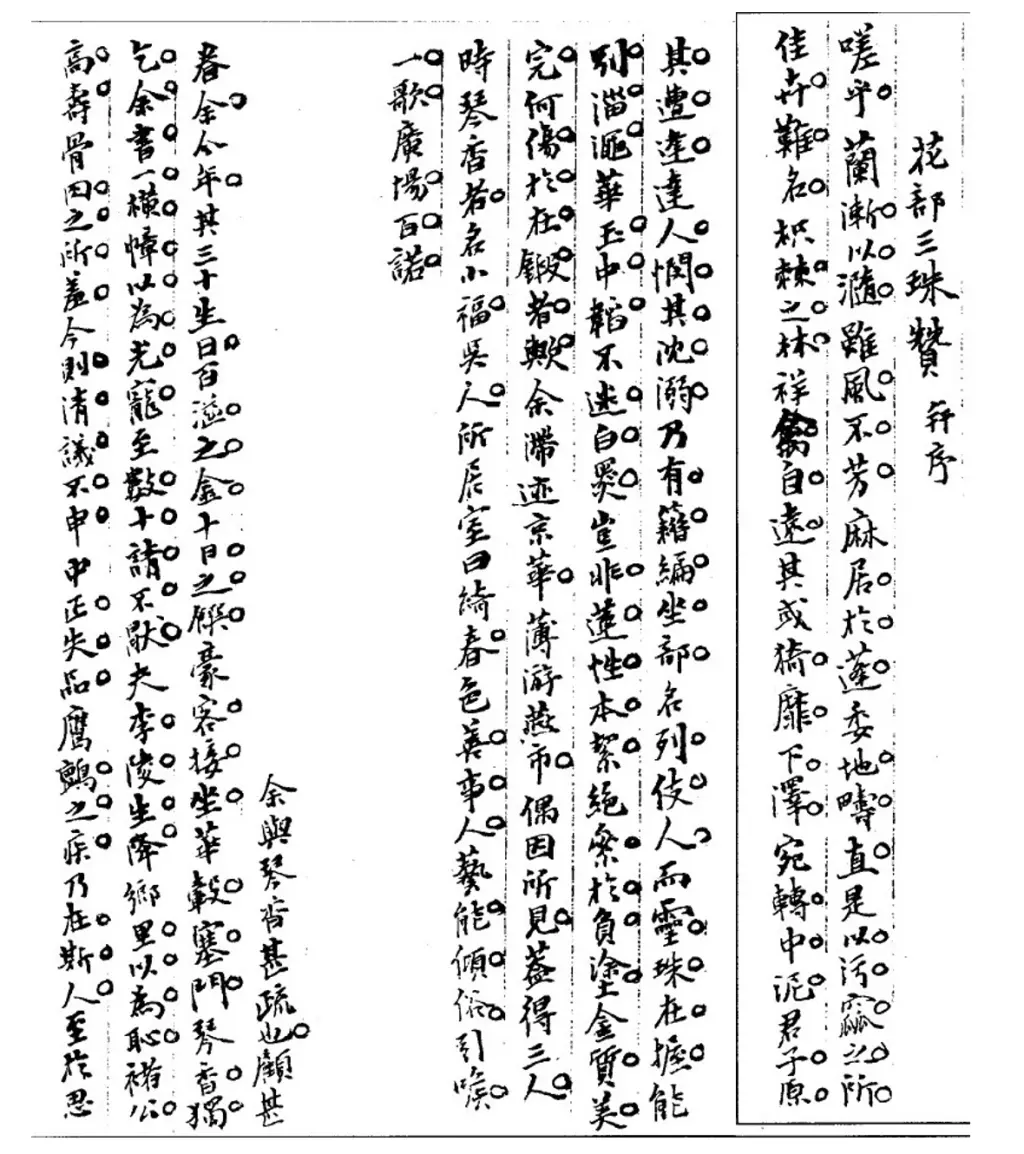 花部三珠贊 并序
嗟乎蘭漸以滫雖風不芳麻居於蓬委地疇直是以污窳之所
佳卉難名枳棘之林祥禽自遠其或猗靡下澤宛轉中泥君子原
其遭逢達人憫其沈溺乃有籍編坐部名列伎人而靈珠在握能
別淄澠華玉中韜不迷白黑豈非蓮性本絜絕染於負塗金質美
完何傷於在鍛者歟余滯迹京華薄游燕市偶因所見蓋得三人
時琴香者名小福吳人所居室曰綺春色善事人藝能傾俗引喉
一歌廣場百諾
余與琴香甚疏也顧甚
眷余今年其三十生日百溢之金十日之饌豪客接坐華轂塞門琴香獨
乞余書一橫幛以為光寵至數十請不厭夫李陵生降鄉里以為恥褚公
高壽骨囙之所羞今則清議不申中正失品鷹鸇之疾乃在斯人至於忍